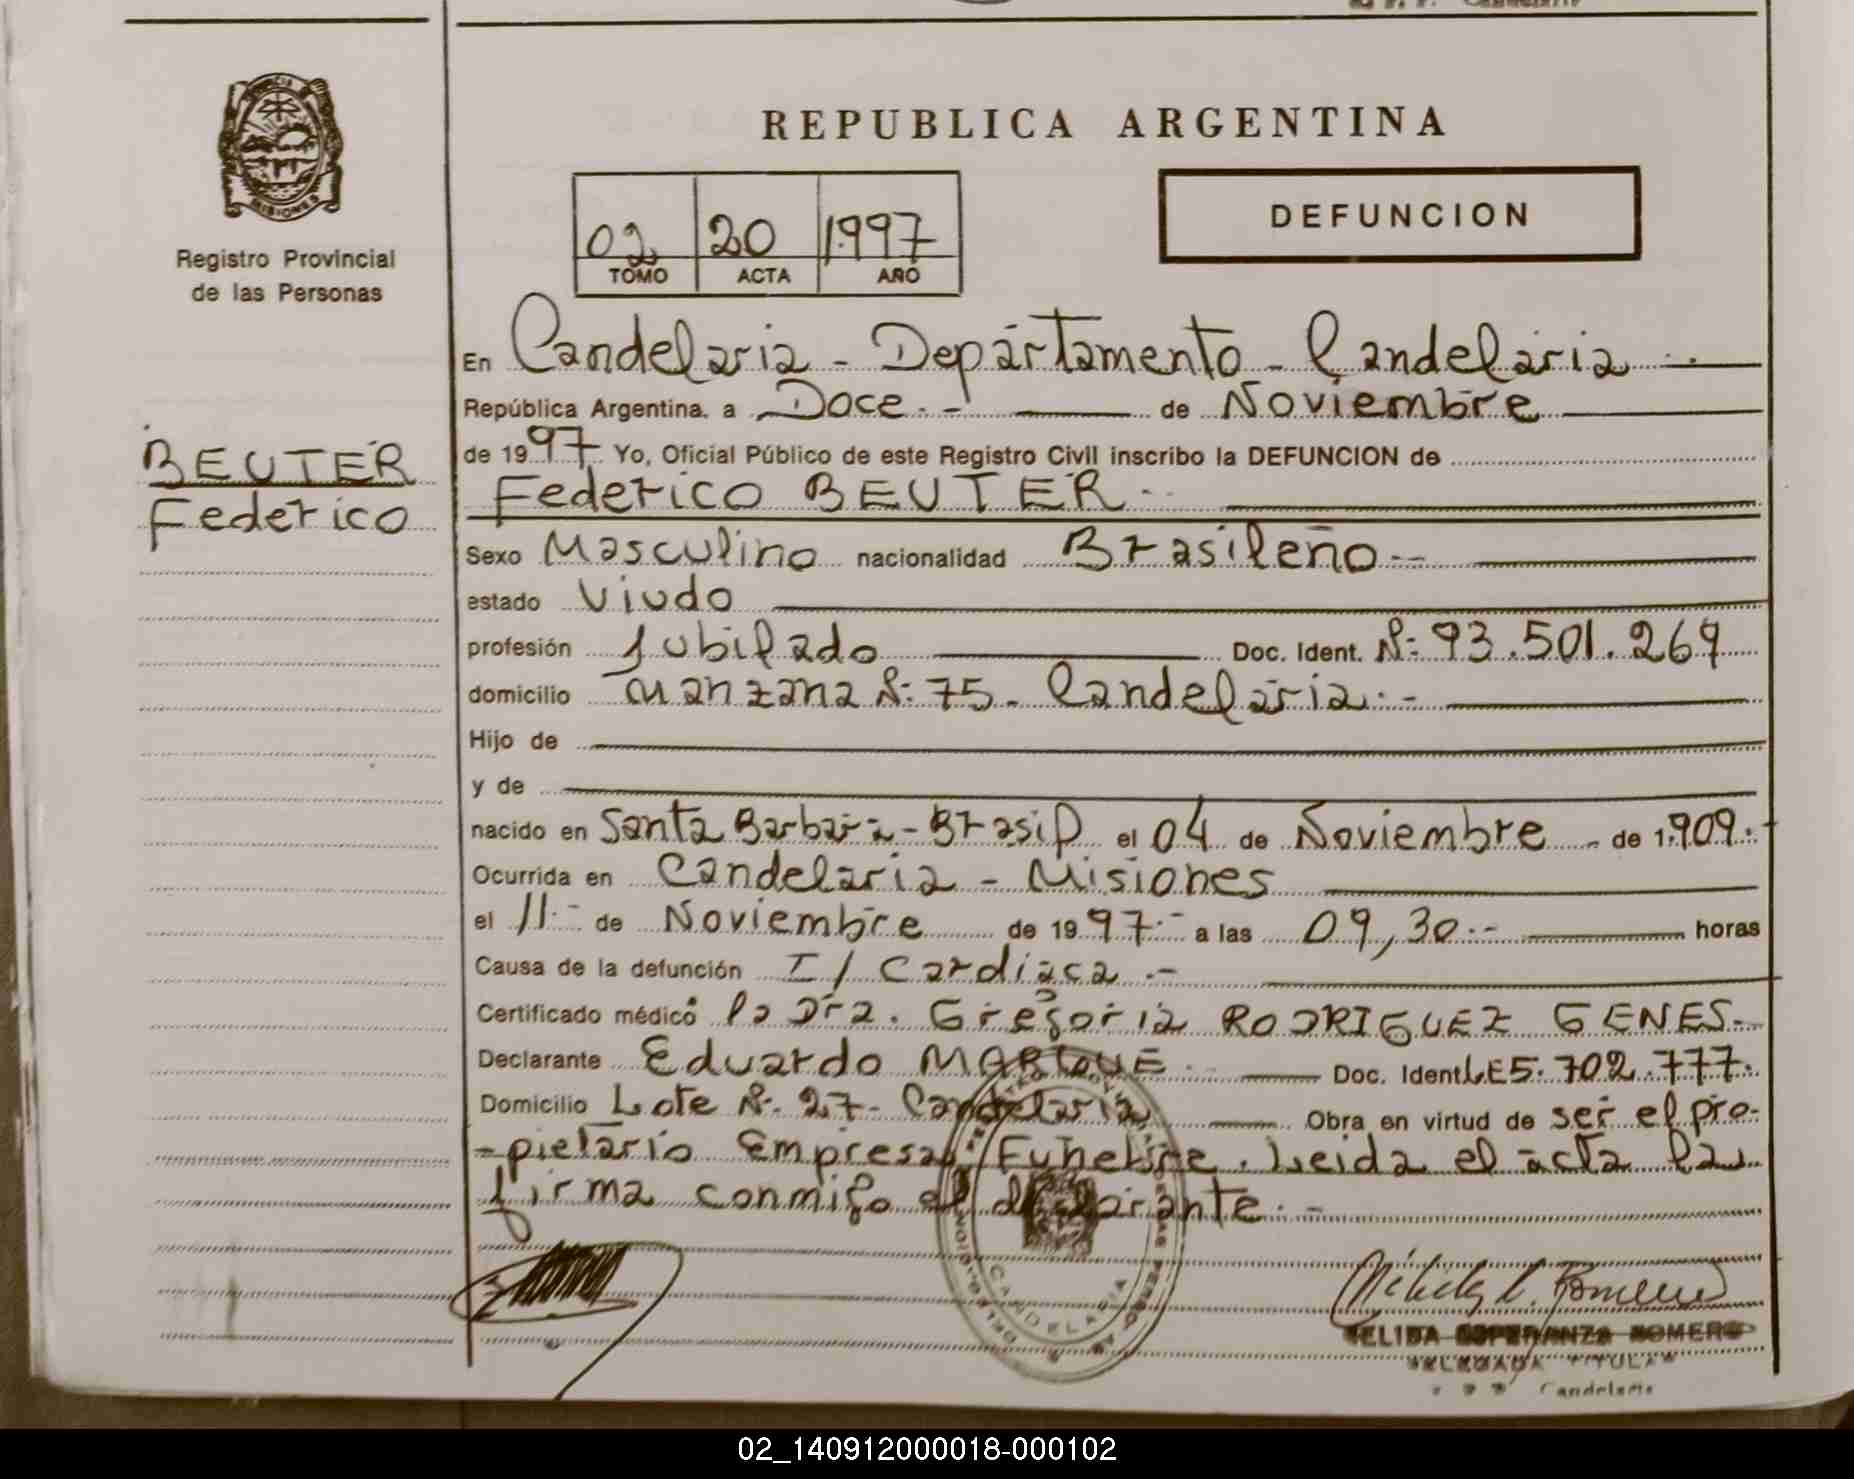 PROVINCIA
MISIONES
Registro Provincial
de las Personas
BEUTER
Federico
REPUBLICA ARGENTINA
02 20 1997
TOMO ACTA AÑO
DEFUNCION
En Candelaria - Departamento - Candelaria .-
República Argentina, a Doce.- de Noviembre
de 1997. Yo, Oficial Público de este Registro Civil inscribo la DEFUNCION de
Federico BEUTER.-
Sexo Masculino nacionalidad Brasileño.-
estado Viudo
profesión Jubilado Doc. Ident. Nº 93.501.269
domicilio Manzana Nº 75 - Candelaria.-
Hijo de
y de
nacido en Santa Barbara - Brasil el 04 de Noviembre - de 1.909.-
Ocurrida en Candelaria - Misiones
el 11.- de Noviembre de 1997.- a las 09,30.- horas
Causa de la defunción I/ Cardiaca.-
Certificado médico la Dra. Gregoria RODRIGUEZ GENES.-
Declarante Eduardo MARQUE.- Doc. Ident. LE 5.702.777.-
Domicilio Lote Nº 27 - Candelaria Obra en virtud de ser el pro-
-pietario Empresa Funebre. Leida el acta la
firma conmigo el declarante.-
CANDELARIA
NELIDA ESPERANZA ROMERO
DELEGADA TITULAR
Candelaria
02_140912000018-000102